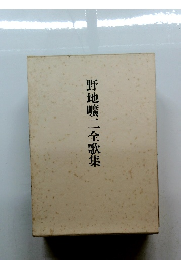 野地曠二全歌集